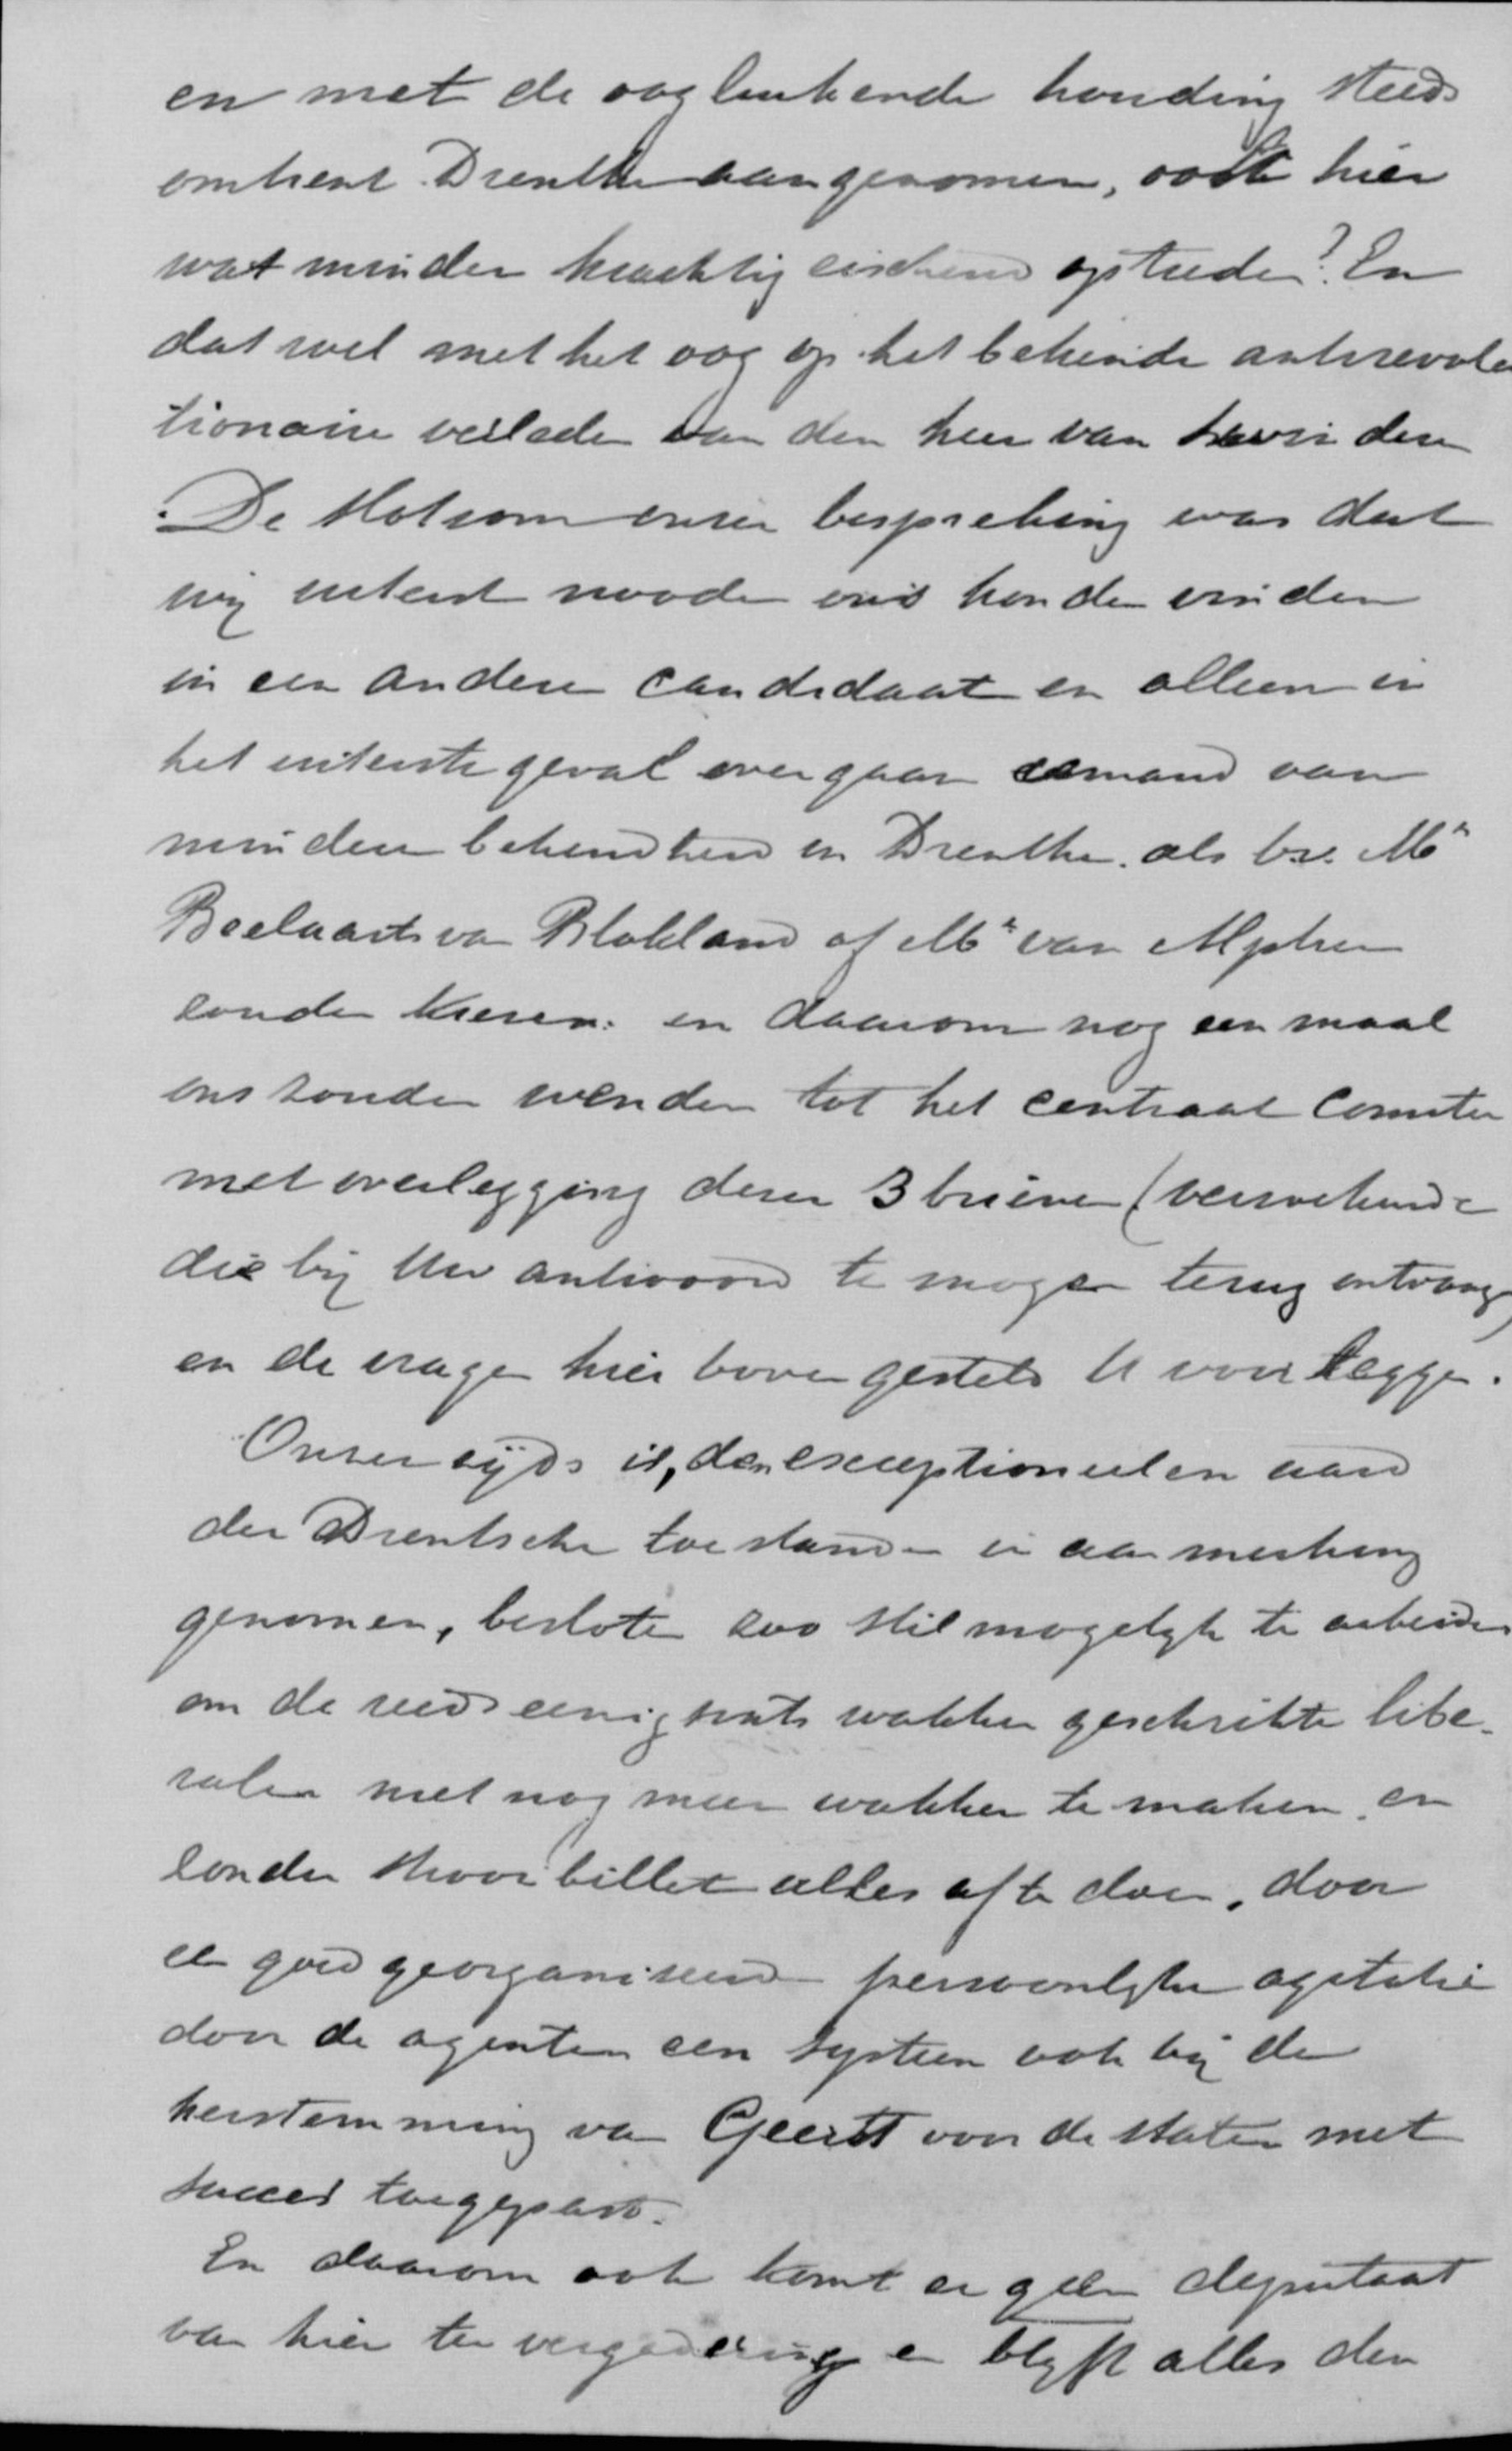 en met de oogluikende houding steeds
omtrent Drenthe aangenomen, ook hier
wat minder krachtig eischend optreden? En
dat wel met het oog op het bekende antirevolu
tionaire verleden van den heer van
De slotsom onzer bespreking was dat
wij uiterst noode ons konden vinden
in een andere candidaat en alleen in
het uiterste geval overgaan iemand van
mindere bekendheid in Drenthe. als bv. Mr
Beelaarts van Blokland of Mr van Alphen
zouden kiezen: en daarom nog een maal
ons zouden wenden tot het centraal Comite
met overlegging dezer 3 brieven (verzoekende
die bij Uw antwoord te mogen terug ontvang)
en de vragen hier boven gesteld U voorleggen.
Onzerzijds is, den exceptioneelen aard
der Drentsche toestanden in aanmerking
genomen, besloten zoo stil mogelyk te arbeiden
om de reeds eenigszints wakker geschrikte libe-
ralen niet nog meer wakker te maken en
zonder strooibillet alles af te doen, door
een goed georganiseerde persoonlyke agitatie
door de agenten een systeem ook bij de
herstemming van Geertt voor de staten met
succes toegepast.
En daarom ook komt er geen deputaat
van hier ter vergadering en blyft alles den